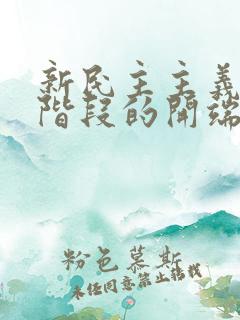 新民主主义
階段的開端
粉色慕斯
未经同意禁止转载